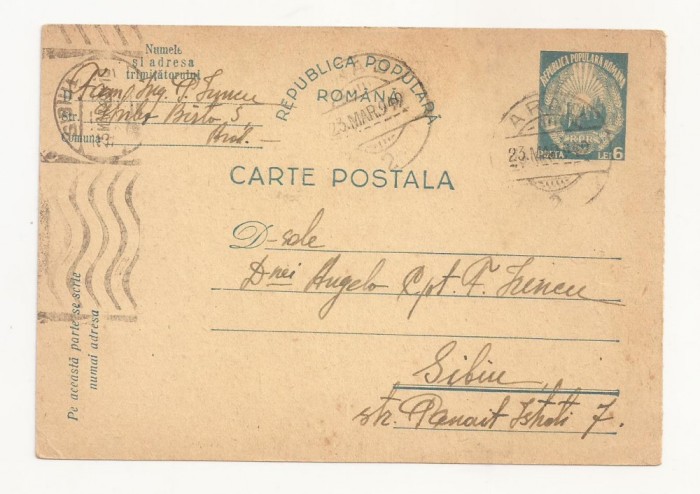 Numele
și adresa
trimițătorului
Fam. Ing. S. Iuncu
Str.
5
Comuna
Arad.
SIBIU
REPUBLICA POPULARĂ
ROMÂNĂ
ARAD
23.MAR.949
2
REPUBLICA POPULARA ROMANA
RPR
POSTA LEI 6
ARAD
23.MAR.949
2
CARTE POSTALA
D-sale
Dnei Angela Cpt. F. Iuncu
Sibiu
str. Panait Istrati 7.
Pe această parte se scrie
numai adresa